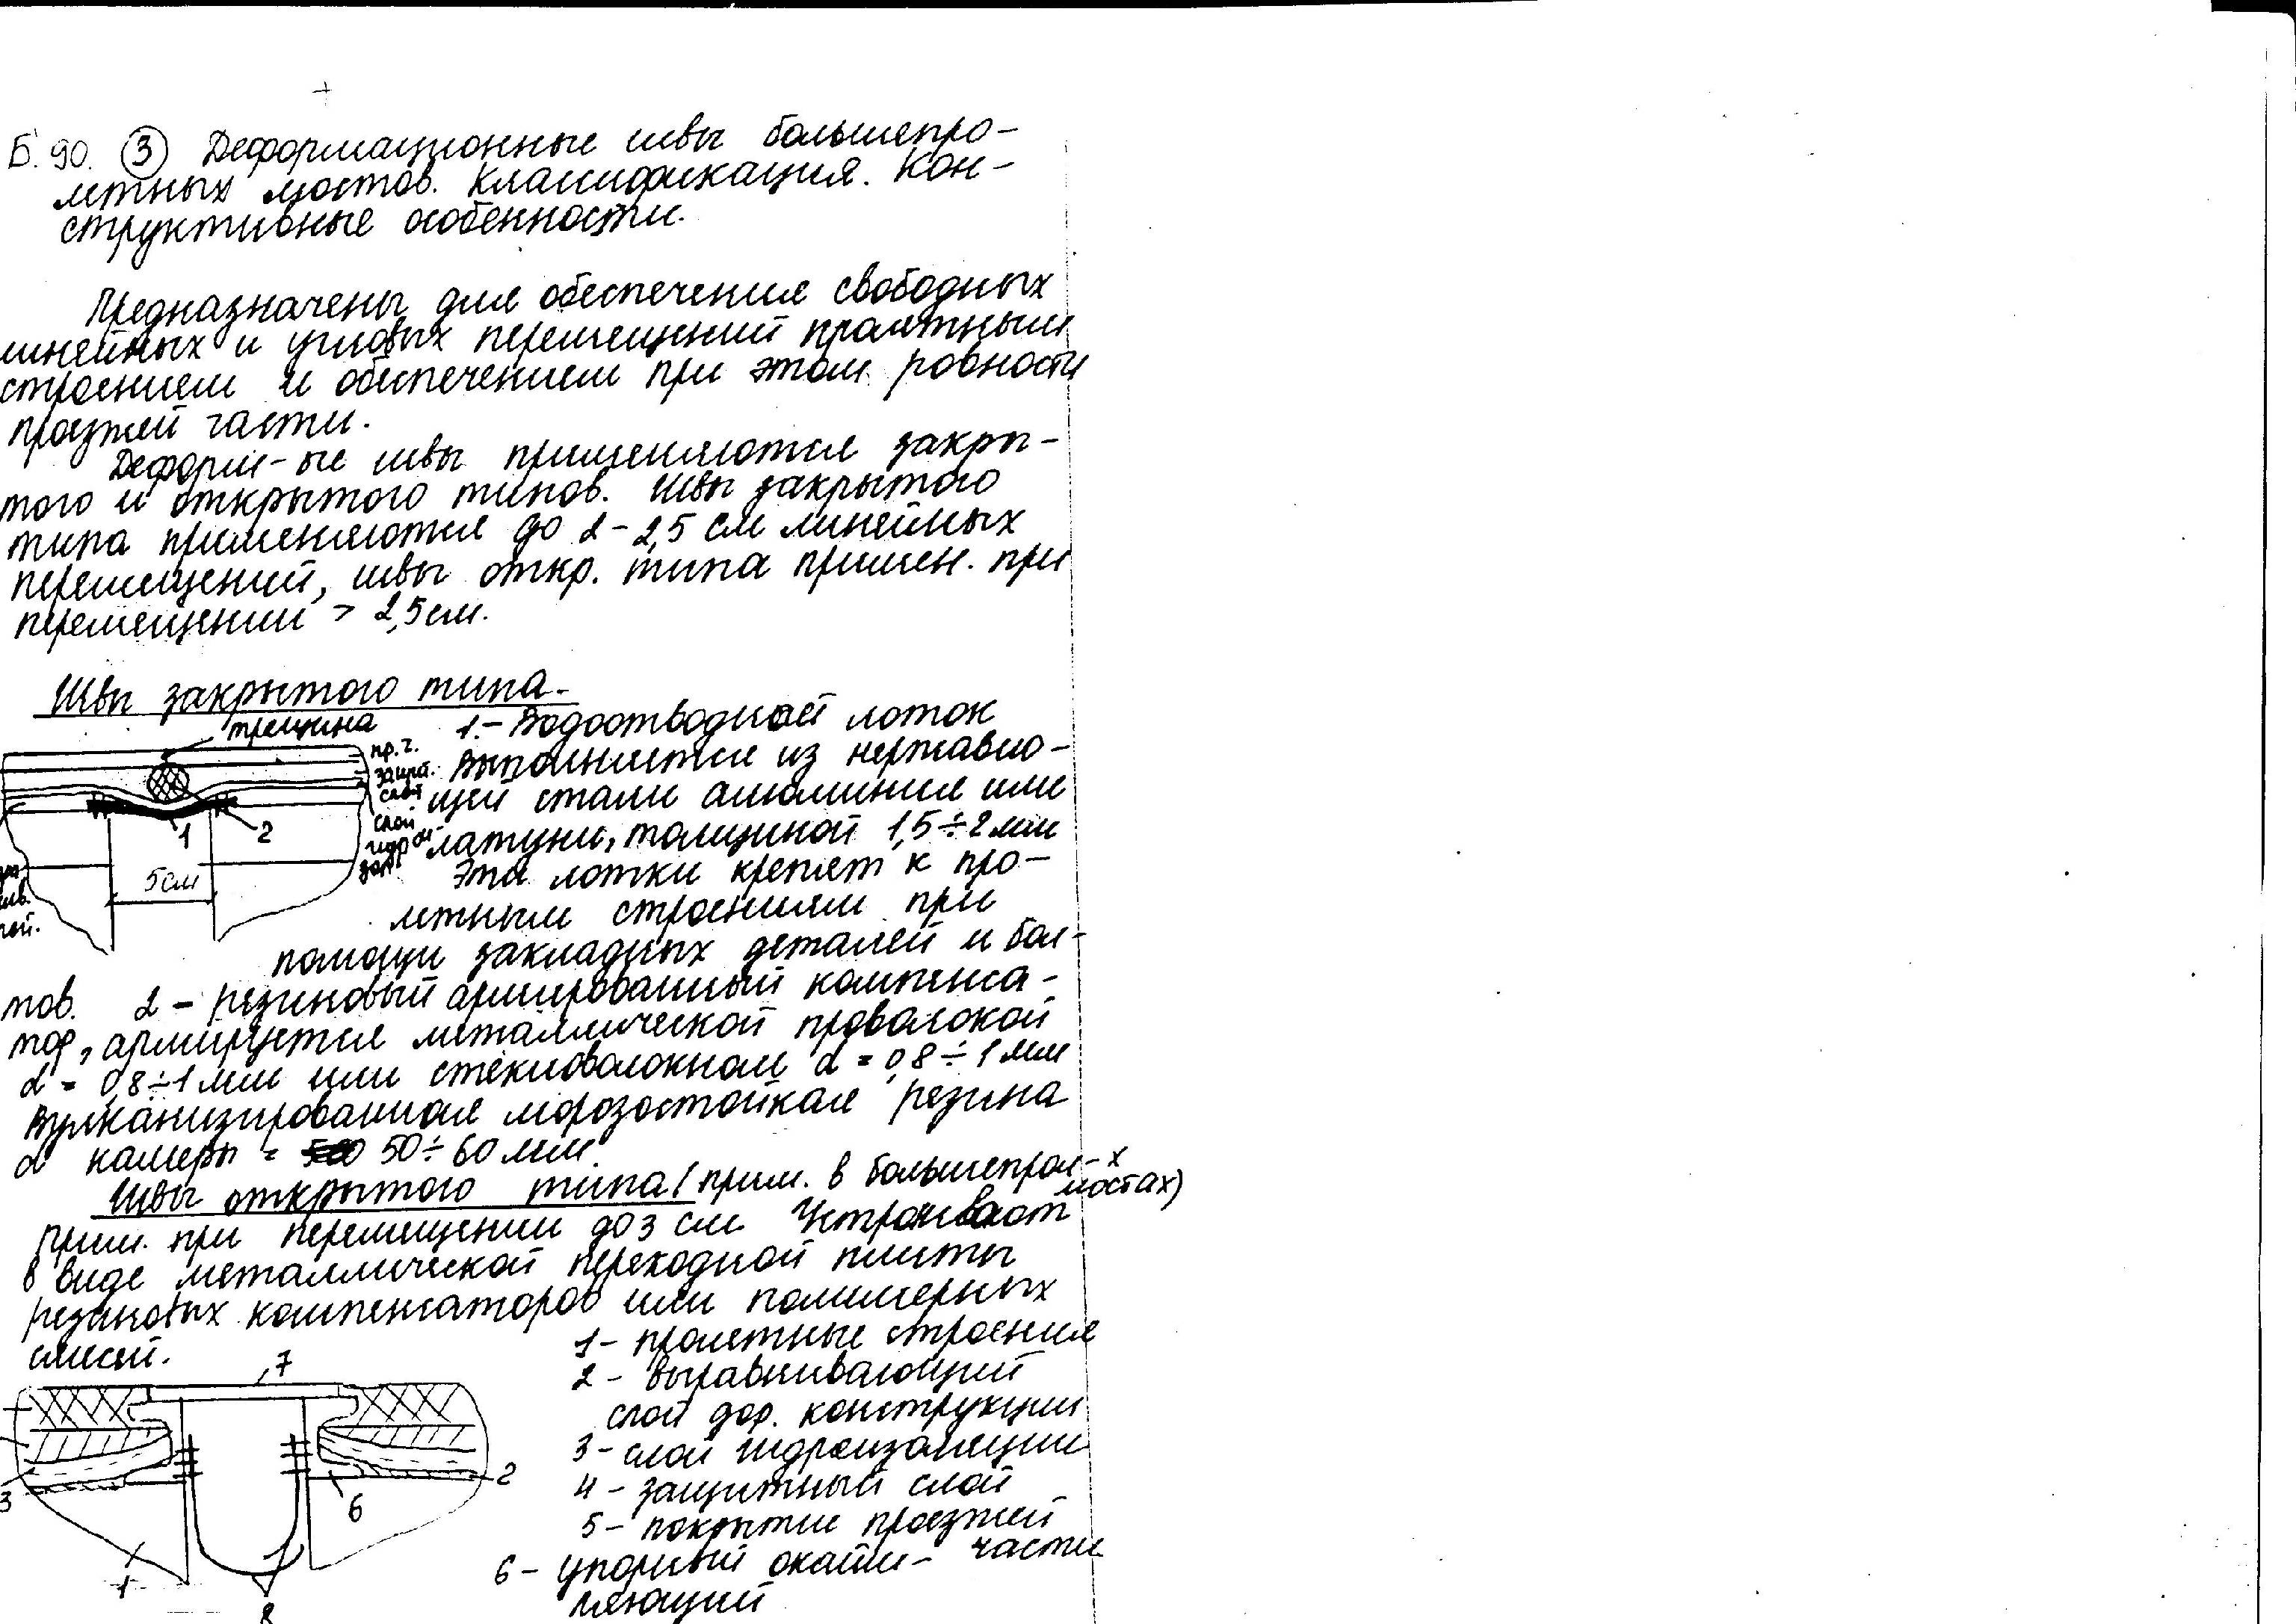 Б. 90. ③ Деформационные швы большепро-
летных мостов. Классификация. Кон-
структивные особенности.
Предназначены для обеспечения свободных
линейных и угловых перемещений пролетным
строением и обеспечением при этом ровности
проезжей части.
Деформ-ые швы применяются закры-
того и открытого типов. Швы закрытого
типа применяются до 2-2,5 см линейных
перемещений, швы откр. типа примен. при
перемещении > 2,5 см.
Швы закрытого типа.
трещина
1.- Водоотводной лоток
пр.ч.
выполняется из нержавею-
защит. слой
щей стали алюминия или
1 2
слой гидроизол.
латуни, толщиной 1,5÷2 мм
Эти лотки крепят к про-
5 см
летным строениям при
помощи закладных деталей и бол-
тов. 2 - резиновый армированный компенса-
тор, армируется металлической проволокой
d = 0,8÷1 мм или стекловолокном d = 0,8÷1 мм
Вулканизированная морозостойкая резина
d камеры = 50÷60 мм.
Швы открытого типа (прим. в большепрол-х мостах)
Прим. при перемещении до 3 см Устраивают
в виде металлической переходной плиты
резиновых компенсаторов или полимерных
смесей.
1- пролетные строения
7
2 - выравнивающий
слой дор. конструкции
3- слой гидроизоляции
2
4 - защитный слой
3
6
5- покрытие проезжей части
6 - упорный окайм-
1
ляющий
8